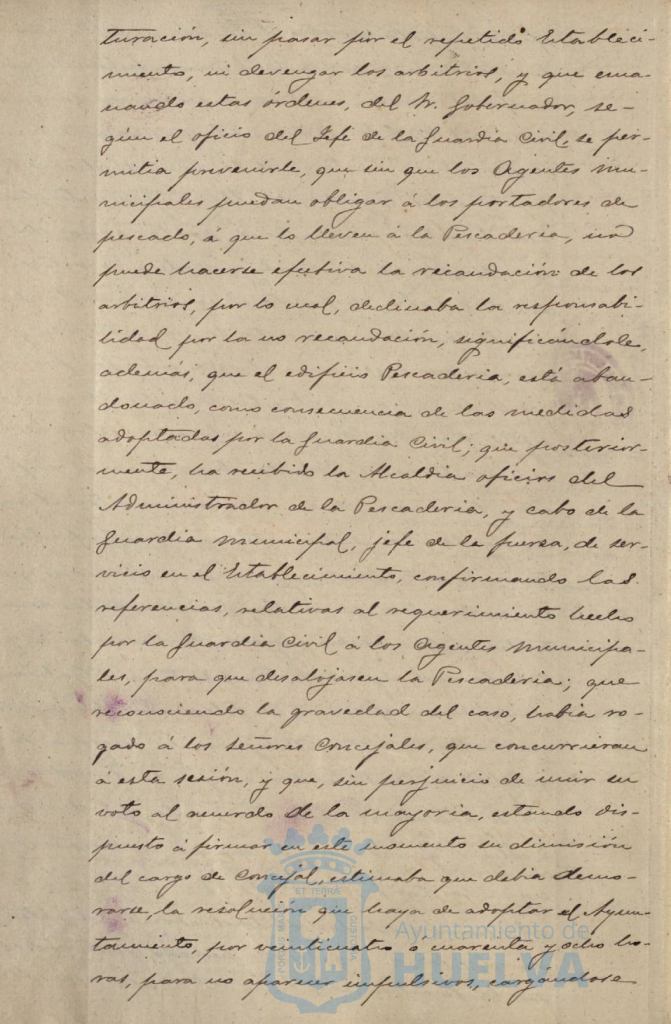 turación, sin pasar por el repetido Estableci-
miento, ni devengar los arbitrios, y que ema-
nando estas órdenes, del Sr. Gobernador, se-
gún el oficio del Jefe de la Guardia Civil, se per-
mitia prevenirle, que sin que los Agentes mu-
nicipales puedan obligar á los portadores de
pescado, á que lo lleven á la Pescaderia, no
puede hacerse efectiva la recaudación de los
arbitrios, por lo cual, declinaba la responsabi-
lidad por la no recaudación, significándole,
además, que el edificio Pescaderia, está aban-
donado, como consecuencia de las medidas
adoptadas por la Guardia Civil; que posterior-
mente, ha recibido la Alcaldia oficios del
Administrador de la Pescaderia, y cabo de la
Guardia municipal, jefe de la fuerza, de ser-
vicio en el Establecimiento, confirmando las
referencias, relativas al requerimiento hecho
por la Guardia Civil á los Agentes municipa-
les, para que desalojasen la Pescaderia; que
reconociendo la gravedad del caso, habia ro-
gado á los señores Concejales, que concurrieran
á esta sesión, y que, sin perjuicio de unir su
voto al acuerdo de la mayoria, estando dis-
puesto á firmar en este momento su dimisión
del cargo de Concejal, estimaba que debia demo-
rarse, la resolución que haya de adoptar el Ayun-
tamiento, por veinticuatro o cuarenta y ocho ho-
ras, para no aparecer impulsivos, cargándose
Ayuntamiento de
HUELVA